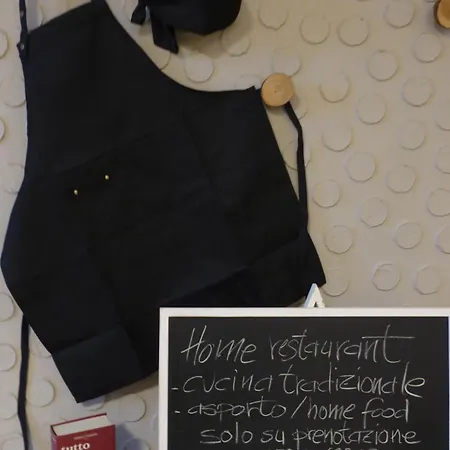 Home restaurant
- cucina tradizionale
- asporto / home food
solo su prenotazione
tutto